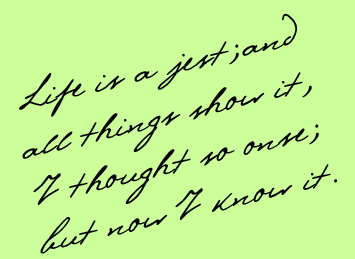 Life is a jest;and
all things show it,
I thought so onse;
but now I know it.